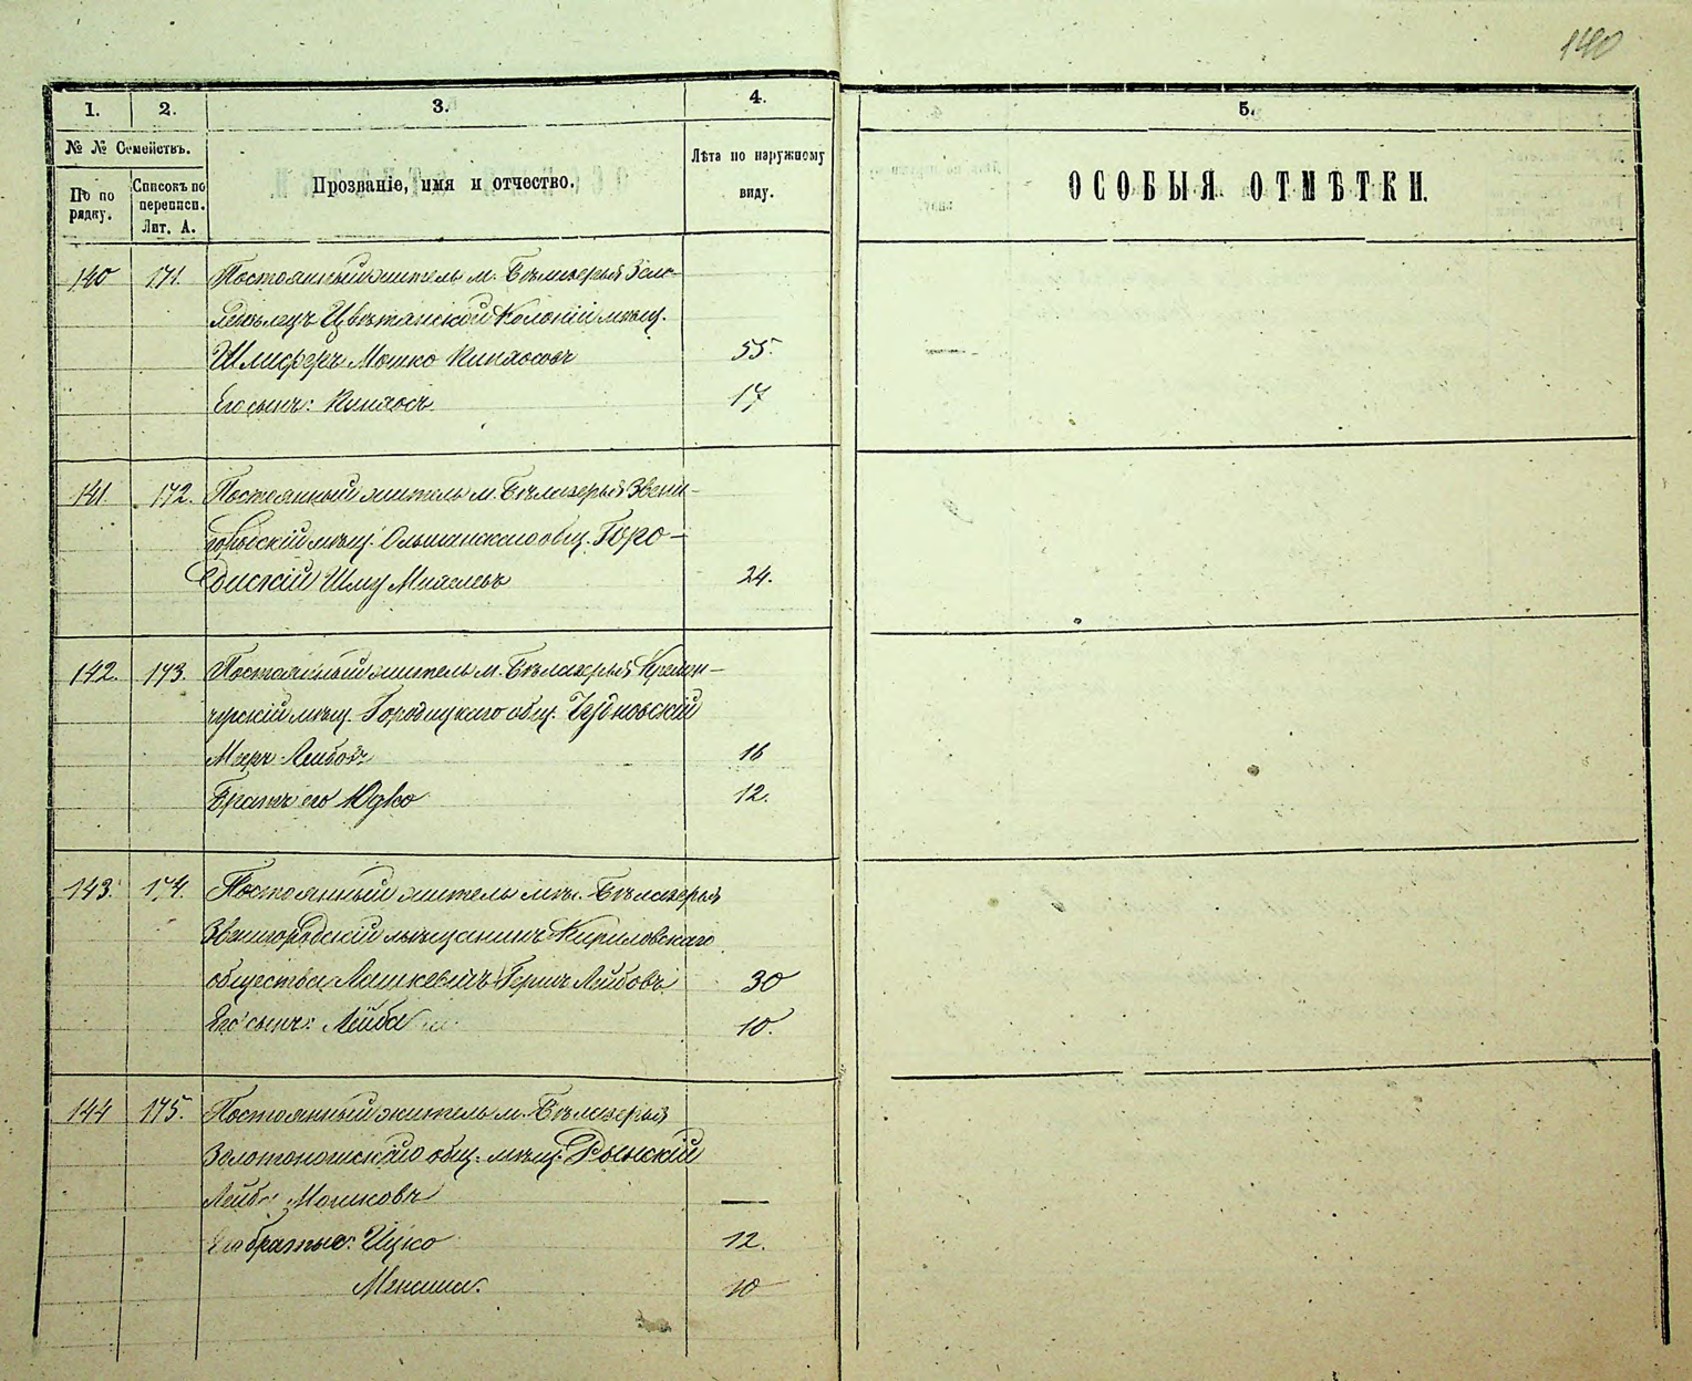 140
1.
2.
3.
4.
5.
№ № Семействъ.
По по рядку.
Списокъ по переписи. Лит. А.
Прозваніе, имя и отчество.
Лѣта по наружному виду.
ОСОБЫЯ ОТМѢТКИ.
140 171. Постоянный житель м. Бѣлозерья Земле-
дѣлецъ Колоніи мѣщ.
Мошко Пинхосовъ 55.
Его сынъ: Пинхосъ 17
141. 172. Постоянный житель м. Бѣлозерья Звени-
городскій мѣщ. Ольшанскаго общ. Горо-
дискій Шлу 24.
142. 173. Постоянный житель м. Бѣлозерья Кремен-
чугскій мѣщ. Городищкаго общ. Чудновскій
Меръ Лейбовъ 16
Братъ его Юдко 12.
143. 174. Постоянный житель мѣ. Бѣлозерья
Звенигородскій мѣщанинъ Кириловскаго
общества Лашкевичъ Гершъ Лейбовъ 30
Его сынъ: Лейба 10.
144 175. Постоянный житель м. Бѣлозерья
Золотоношскаго общ. мѣщ. Росинскій
Лейба Мошковъ —
Его братья: Ицко 12.
Менаша. 10